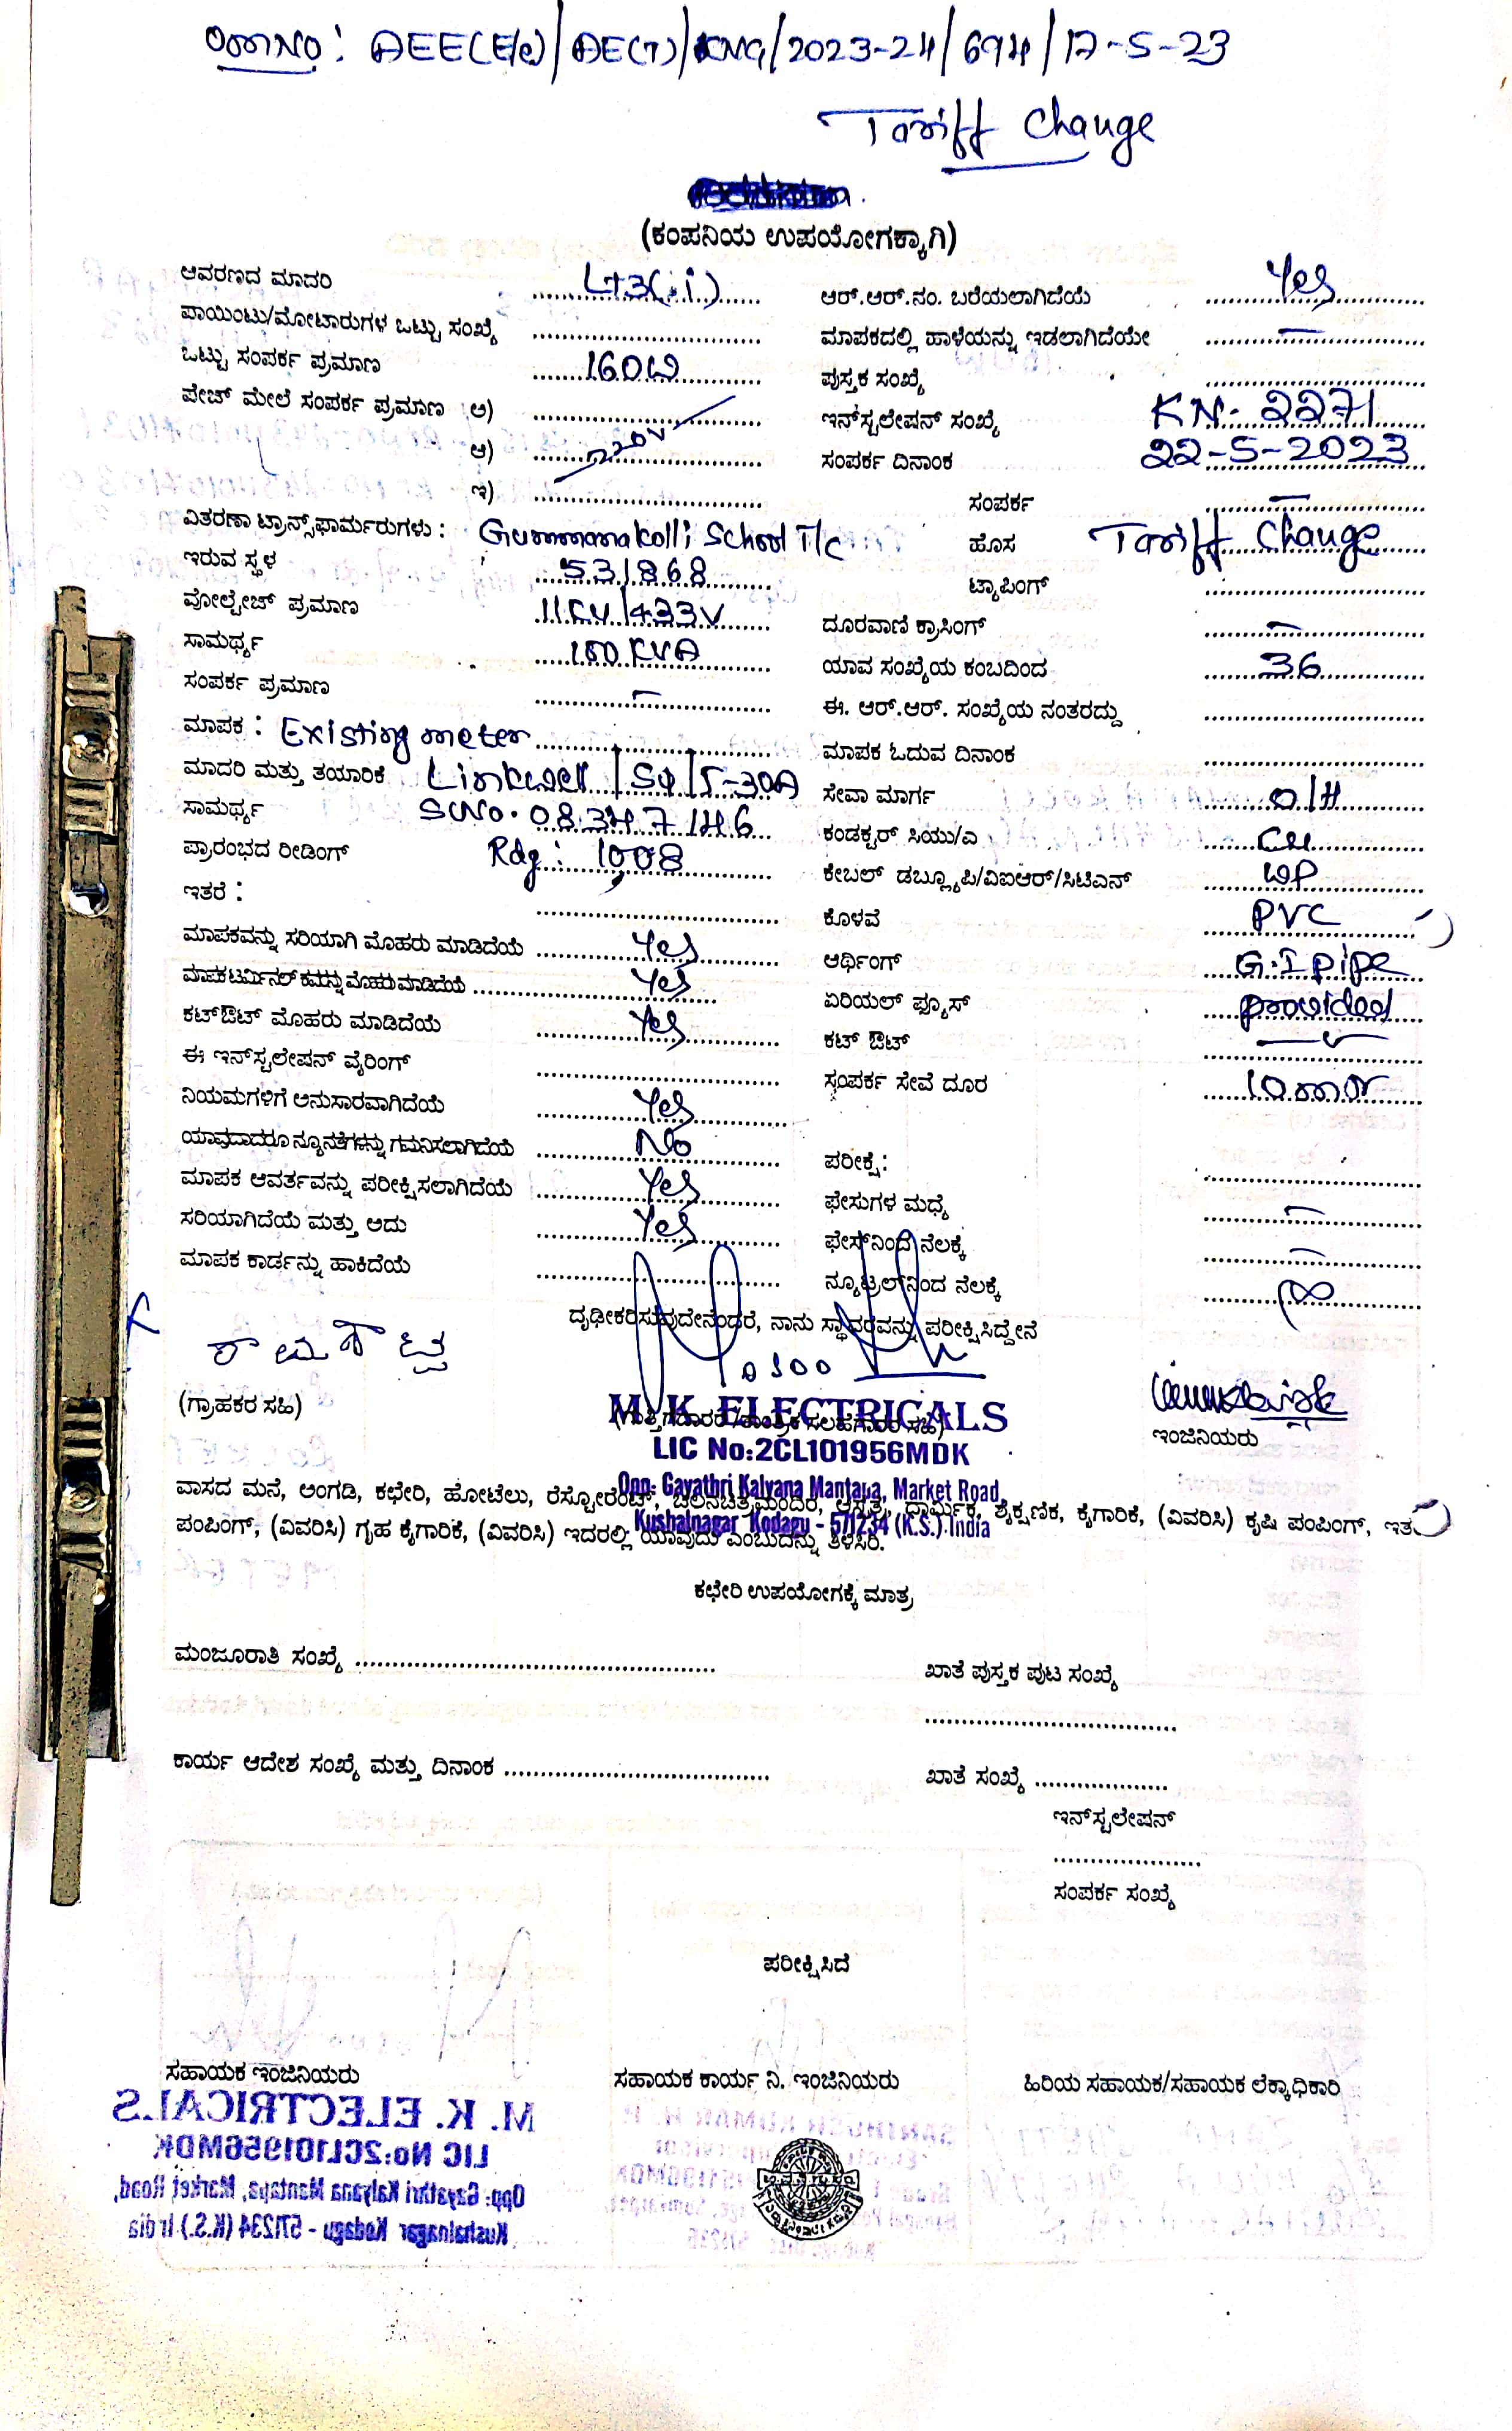 OMNO: AEE(Ele)/AE(T)/KNG/2023-24/694/17-5-23
Tariff Change
(ಕಂಪನಿಯ ಉಪಯೋಗಕ್ಕಾಗಿ)
ಆವರಣದ ಮಾದರಿ LT3(ii) ಆರ್.ಆರ್.ನಂ. ಬರೆಯಲಾಗಿದೆಯೆ Yes
ಪಾಯಿಂಟು/ಮೋಟಾರುಗಳ ಒಟ್ಟು ಸಂಖ್ಯೆ ಮಾಪಕದಲ್ಲಿ ಹಾಳೆಯನ್ನು ಇಡಲಾಗಿದೆಯೇ –
ಒಟ್ಟು ಸಂಪರ್ಕ ಪ್ರಮಾಣ 160W ಪುಸ್ತಕ ಸಂಖ್ಯೆ
ಪೇಜ್ ಮೇಲೆ ಸಂಪರ್ಕ ಪ್ರಮಾಣ ಅ) ಇನ್‌ಸ್ಟಲೇಷನ್ ಸಂಖ್ಯೆ KN-2271
ಆ) 220V ಸಂಪರ್ಕ ದಿನಾಂಕ 22-5-2023
ಇ) ಸಂಪರ್ಕ –
ವಿತರಣಾ ಟ್ರಾನ್ಸ್‌ಫಾರ್ಮರುಗಳು : Gummanakolli School T/C ಹೊಸ Tariff Change
ಇರುವ ಸ್ಥಳ 531868 ಟ್ಯಾಪಿಂಗ್
ವೋಲ್ಟೇಜ್ ಪ್ರಮಾಣ 11KV/433V ದೂರವಾಣಿ ಕ್ರಾಸಿಂಗ್ –
ಸಾಮರ್ಥ್ಯ 100 KVA ಯಾವ ಸಂಖ್ಯೆಯ ಕಂಬದಿಂದ 36
ಸಂಪರ್ಕ ಪ್ರಮಾಣ – ಈ. ಆರ್.ಆರ್. ಸಂಖ್ಯೆಯ ನಂತರದ್ದು
ಮಾಪಕ : Existing meter ಮಾಪಕ ಓದುವ ದಿನಾಂಕ
ಮಾದರಿ ಮತ್ತು ತಯಾರಿಕೆ Linkwell/Sφ/5-30A ಸೇವಾ ಮಾರ್ಗ O/H
ಸಾಮರ್ಥ್ಯ SlNo. 08347146 ಕಂಡಕ್ಟರ್ ಸಿಯು/ಎ Cu
ಪ್ರಾರಂಭದ ರೀಡಿಂಗ್ Rdg: 1908 ಕೇಬಲ್ ಡಬ್ಲ್ಯೂಪಿ/ವಿಐಆರ್/ಸಿಟಿಎನ್ WP
ಇತರೆ : ಕೊಳವೆ PVC
ಮಾಪಕವನ್ನು ಸರಿಯಾಗಿ ಮೊಹರು ಮಾಡಿದೆಯೆ Yes ಅರ್ಥಿಂಗ್ G.I pipe
ಮಾಪಕ ಟರ್ಮಿನಲ್ ಕವನ್ನು ಮೊಹರು ಮಾಡಿದೆಯೆ Yes ಏರಿಯಲ್ ಫ್ಯೂಸ್ provided
ಕಟ್‌ಔಟ್ ಮೊಹರು ಮಾಡಿದೆಯೆ Yes ಕಟ್ ಔಟ್
ಈ ಇನ್‌ಸ್ಟಲೇಷನ್ ವೈರಿಂಗ್ ಸಂಪರ್ಕ ಸೇವೆ ದೂರ 10mtr
ನಿಯಮಗಳಿಗೆ ಅನುಸಾರವಾಗಿದೆಯೆ Yes
ಯಾವುದಾದರೂ ನ್ಯೂನತೆಗಳನ್ನು ಗಮನಿಸಲಾಗಿದೆಯೆ No ಪರೀಕ್ಷೆ:
ಮಾಪಕ ಆವರ್ತವನ್ನು ಪರೀಕ್ಷಿಸಲಾಗಿದೆಯೆ Yes ಫೇಸುಗಳ ಮಧ್ಯೆ –
ಸರಿಯಾಗಿದೆಯೆ ಮತ್ತು ಅದು Yes ಫೇಸ್‌ನಿಂದ ನೆಲಕ್ಕೆ –
ಮಾಪಕ ಕಾರ್ಡನ್ನು ಹಾಕಿದೆಯೆ ನ್ಯೂಟ್ರಲ್‌ನಿಂದ ನೆಲಕ್ಕೆ ∞
ದೃಢೀಕರಿಸುವುದೇನೆಂದರೆ, ನಾನು ಸ್ಥಾವರವನ್ನು ಪರೀಕ್ಷಿಸಿದ್ದೇನೆ
(ಗ್ರಾಹಕರ ಸಹಿ) M. K. ELECTRICALS
LIC No:2CL101956MDK ಇಂಜಿನಿಯರು
Opp: Gayathri Kalyana Mantapa, Market Road,
Kushalnagar Kodagu - 571234 (K.S.) India
ವಾಸದ ಮನೆ, ಅಂಗಡಿ, ಕಛೇರಿ, ಹೋಟೆಲು, ರೆಸ್ಟೋರೆಂಟ್, ಚಲನಚಿತ್ರಮಂದಿರ, ಆಸ್ಪತ್ರೆ, ಧಾರ್ಮಿಕ, ಶೈಕ್ಷಣಿಕ, ಕೈಗಾರಿಕೆ, (ವಿವರಿಸಿ) ಕೃಷಿ ಪಂಪಿಂಗ್, ಇತ
ಪಂಪಿಂಗ್, (ವಿವರಿಸಿ) ಗೃಹ ಕೈಗಾರಿಕೆ, (ವಿವರಿಸಿ) ಇದರಲ್ಲಿ ಯಾವುದು ಎಂಬುದನ್ನು ತಿಳಿಸಿರಿ.
ಕಛೇರಿ ಉಪಯೋಗಕ್ಕೆ ಮಾತ್ರ
ಮಂಜೂರಾತಿ ಸಂಖ್ಯೆ ಖಾತೆ ಪುಸ್ತಕ ಪುಟ ಸಂಖ್ಯೆ
ಕಾರ್ಯ ಆದೇಶ ಸಂಖ್ಯೆ ಮತ್ತು ದಿನಾಂಕ ಖಾತೆ ಸಂಖ್ಯೆ
ಇನ್‌ಸ್ಟಲೇಷನ್
ಸಂಪರ್ಕ ಸಂಖ್ಯೆ
ಪರೀಕ್ಷಿಸಿದೆ
ಸಹಾಯಕ ಇಂಜಿನಿಯರು ಸಹಾಯಕ ಕಾರ್ಯ ನಿ. ಇಂಜಿನಿಯರು ಹಿರಿಯ ಸಹಾಯಕ/ಸಹಾಯಕ ಲೆಕ್ಕಾಧಿಕಾರಿ
M. K. ELECTRICALS
LIC No:2CL101956MDK
Opp: Gayathri Kalyana Mantapa, Market Road,
Kushalnagar Kodagu - 571234 (K.S.) India